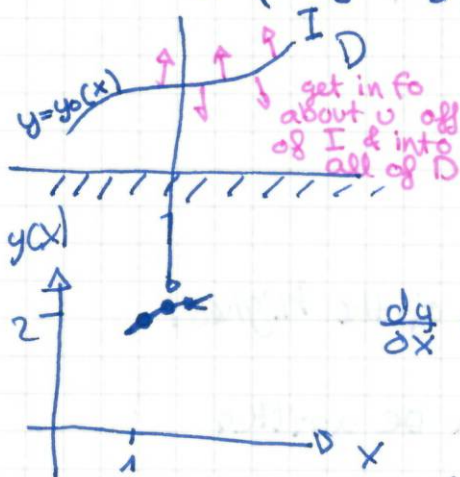 I
D
y=y₀(x)
get info
about u off
of I & into
all of D
y(x)
2
dy/dx
1
x